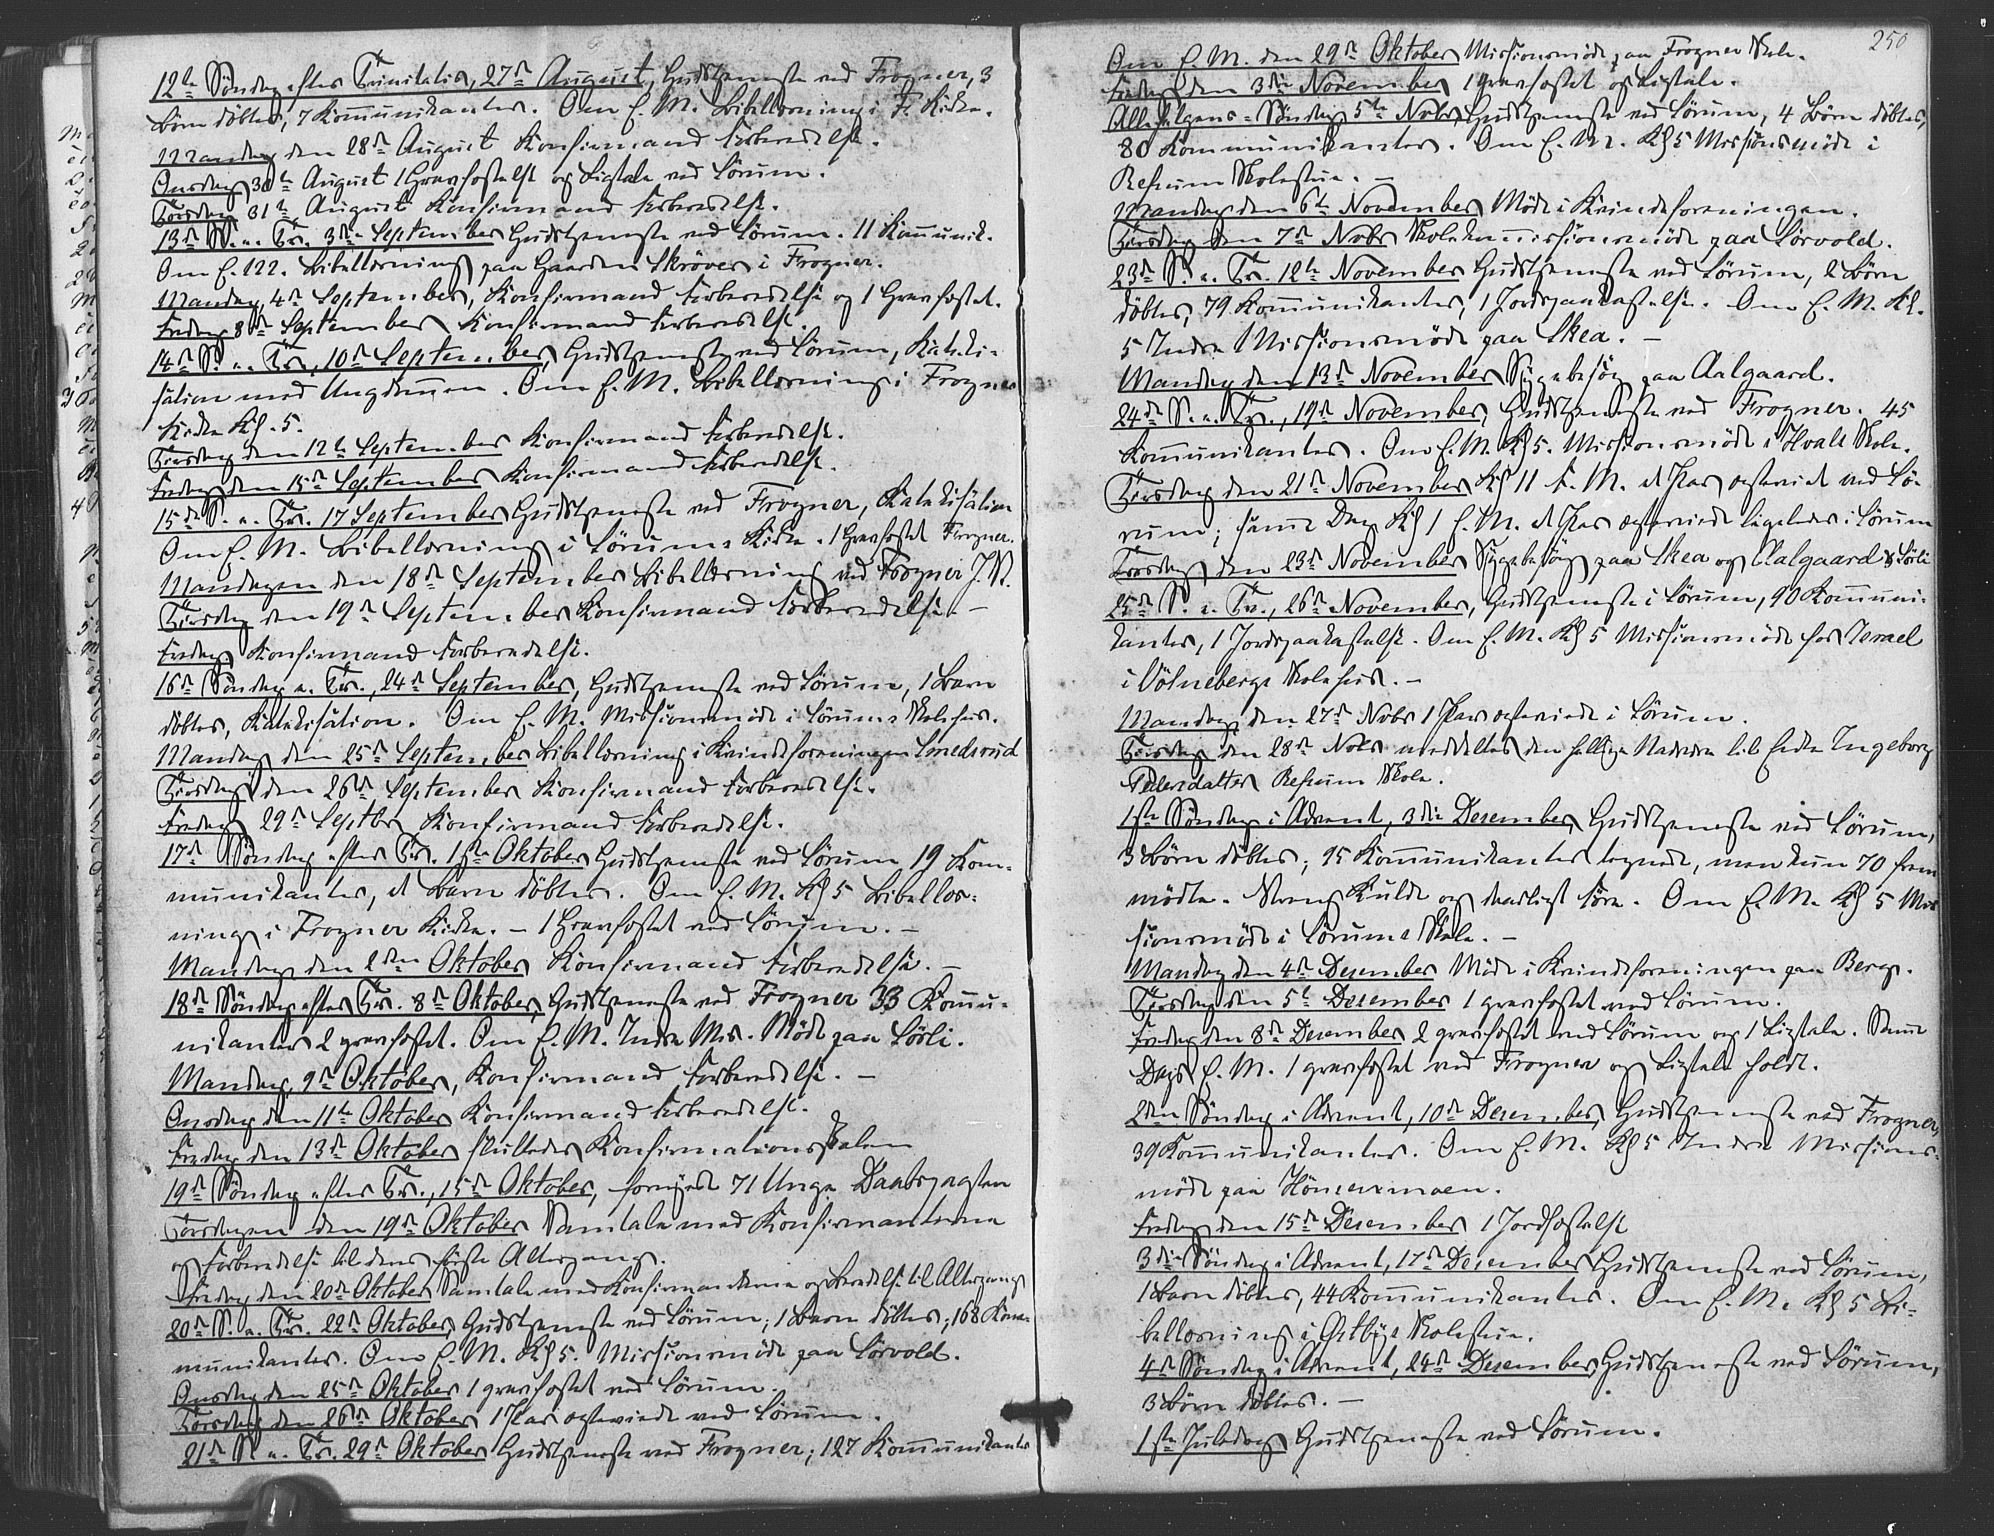 12te Söndag efter Trinitatis, 27de August, Gudstjeneste ved Frogner, 3
Börn döbtes, 7 Kommunikanter. Om E. M. Bibellæsning i Fr. Kirke.
Mandag den 28de August Konfirmand Forberedelse.
Onsdag 30te August 1 Gravfæstelse og Ligtale ved Sörum.
Torsdag 31te August Konfirmand Forberedelse.
13de S. e. Tr. 3die September Gudstjeneste ved Sörum. 11 Kommunik.
Om E. M. Bibellæsning paa Gaarden Skrøver i Frogner.
Mandag, 4de September, Konfirmand Forberedelse og 1 Gravfæstet.
Fredag 8de September Konfirmand Forberedelse.
14de S. e. Tr., 10de September, Gudstjeneste ved Sörum, Kateki-
sation med Ungdommen. Om E. M. Bibellæsning i Frogner
Kirke Kl. 5.
Tirsdag den 12te September Konfirmand Forberedelse.
Fredag den 15de September Konfirmand Forberedelse.
15de S. e. Tr. 17 September Gudstjeneste ved Frogner, Katekisation
Om E. M. Bibellæsning i Sörums Kirke. 1 Gravfæstet Frogner.
Mandagen den 18de September Bibellæsning ved Frogner J. St.
Tirsdag den 19de September Konfirmand Forberedelse. —
Fredag Konfirmand Forberedelse.
16de Söndag e. Tr., 24de September, Gudstjeneste ved Sörum, 1 Barn
döbtes, Katekisation. Om E. M. Missionsmöde i Sörums Skolehus.
Mandag den 25de September Bibellæsning i Kvindeforeningen Smedsrud
Tirsdag den 26de September Konfirmand Forberedelse.
Fredag 29de Septbr Konfirmand Forberedelse.
17de Söndag efter Tr. 1ste Oktober Gudstjeneste ved Sörum 19 Kom-
munikanter, et Barn döbtes. Om E. M. Kl 5 Bibellæs-
ning i Frogner Kirke. — 1 Gravfæstet ved Sörum. —
Mandag den 2den Oktober Konfirmand Forberedelse. —
18de Söndag efter Tr. 8de Oktober, Gudstjeneste ved Frogner 33 Kommu-
nikanter 2 gravfæstet. Om E. M. Indre Mis. Möde paa Sörli.
Mandag, 9de Oktober, Konfirmand Forberedelse. —
Onsdag den 11te Oktober Konfirmand Forberedelse.
Fredag den 13de Oktober sluttedes Konfirmationsskolen
19de Söndag efter Tr., 15de Oktober, fornyede 71 Unge Daabspagten
Torsdagen den 19de Oktober Samtale med Konfirmanterne
og Forberedelse til deres förste Altergang.
Fredag den 20de Oktober Samtale med Konfirmanderne og Beredelse til Altergang
20de S. e. Tr. 22de Oktober, Gudstjeneste ved Sörum; 1 Barn döbtes; 168 Kom-
munikanter. Om E. M. Kl 5. Missionsmöde paa Sörvold.
Onsdag den 25de Oktober 1 gravfæstet ved Sörum.
Torsdag den 26de Oktober 1 Par egteviede ved Sörum.
21de S. e. Tr. 29de Oktober Gudstjeneste ved Frogner; 127 Kommunikanter
250
Om E. M. den 29de Oktober Missionsmöde paa Frogner Skole.
Fredag den 3die November 1 gravfæstet og Ligtale.
Allehelgens-Söndag 5te Novbr, Gudstjeneste ved Sörum, 4 Börn döbtes,
80 Kommunikanter. Om E. M. Kl 5 Missionsmöde i
Refsum Skolestue. —
Mandag den 6te November Möde i Kvindeforeningen.
Tirsdag den 7de Novbr Skolekommissionsmöde paa Sörvold.
23de S. e. Tr. 12te November Gudstjeneste ved Sörum, 2 Börn
döbtes, 79 Kommunikanter, 1 Jordspaakastelse. Om E. M. Kl.
5 Indre Missionsmöde paa Skea. —
Mandag den 13de November Sygebesög paa Aalgaard.
24de S. e. Tr., 19de November, Gudstjeneste ved Frogner. 45
Kommunikanter. Om E. M. Kl 5. Missionsmöde i Hvals Skole.
Tirsdag den 21de November Kl 11 F. M. et Par egteviet ved Sö-
rum; samme Dag Kl 1 E. M. et Par egteviede ligeledes i Sörum
Torsdag den 23de November Sygebesög paa Skea og Aalgaard & Sörli
25de S. e. Tr., 26de November, Gudstjeneste i Sörum, 90 Kommuni-
kanter, 1 Jordspaakastelse. Om E. M. Kl 5 Missionsmöde for Israel
i Völnebergs Skolehus. —
Mandag den 27de Novbr 1 Par egteviede i Sörum.
Tirsdag den 28de Novbr meddeltes den hellige Nadvere til Enke Ingeborg
Pedersdatter Refsum Skole.
1ste Söndag i Advent, 3die Desember, Gudstjeneste ved Sörum,
3 Börn döbtes; 95 Kommunikanter tegnede, men kun 70 frem
mödte. Streng Kulde og daarligt Före. Om E. M. Kl 5 Mis
sionsmöde i Sörums Skole. —
Mandag den 4de Desember Möde i Kvindeforeningen paa Berg.
Tirsdag den 5te Desember 1 gravfæstet ved Sörum.
Fredag den 8de Desember 2 gravfæstet ved Sörum og 1 Ligtale. Samme
Dags E. M. 1 gravfæstet ved Frogner og Ligtale holdt.
2den Söndag i Advent, 10de Desember, Gudstjeneste ved Frogner,
39 Kommunikanter. Om E. M. Kl 5 Indre Missions-
möde paa Hönsermoen.
Fredag den 15de Desember 1 Jordfæstelse
3die Söndag i Advent, 17de Desember Gudstjeneste ved Sörum,
1 Barn döbtes, 44 Kommunikanter. Om E. M. Kl 5 Bi-
bellæsning i Østbys Skolestue.
4de Söndag i Advent, 24de Desember, Gudstjeneste ved Sörum,
3 Börn döbtes. —
1ste Juledag Gudstjeneste ved Sörum.